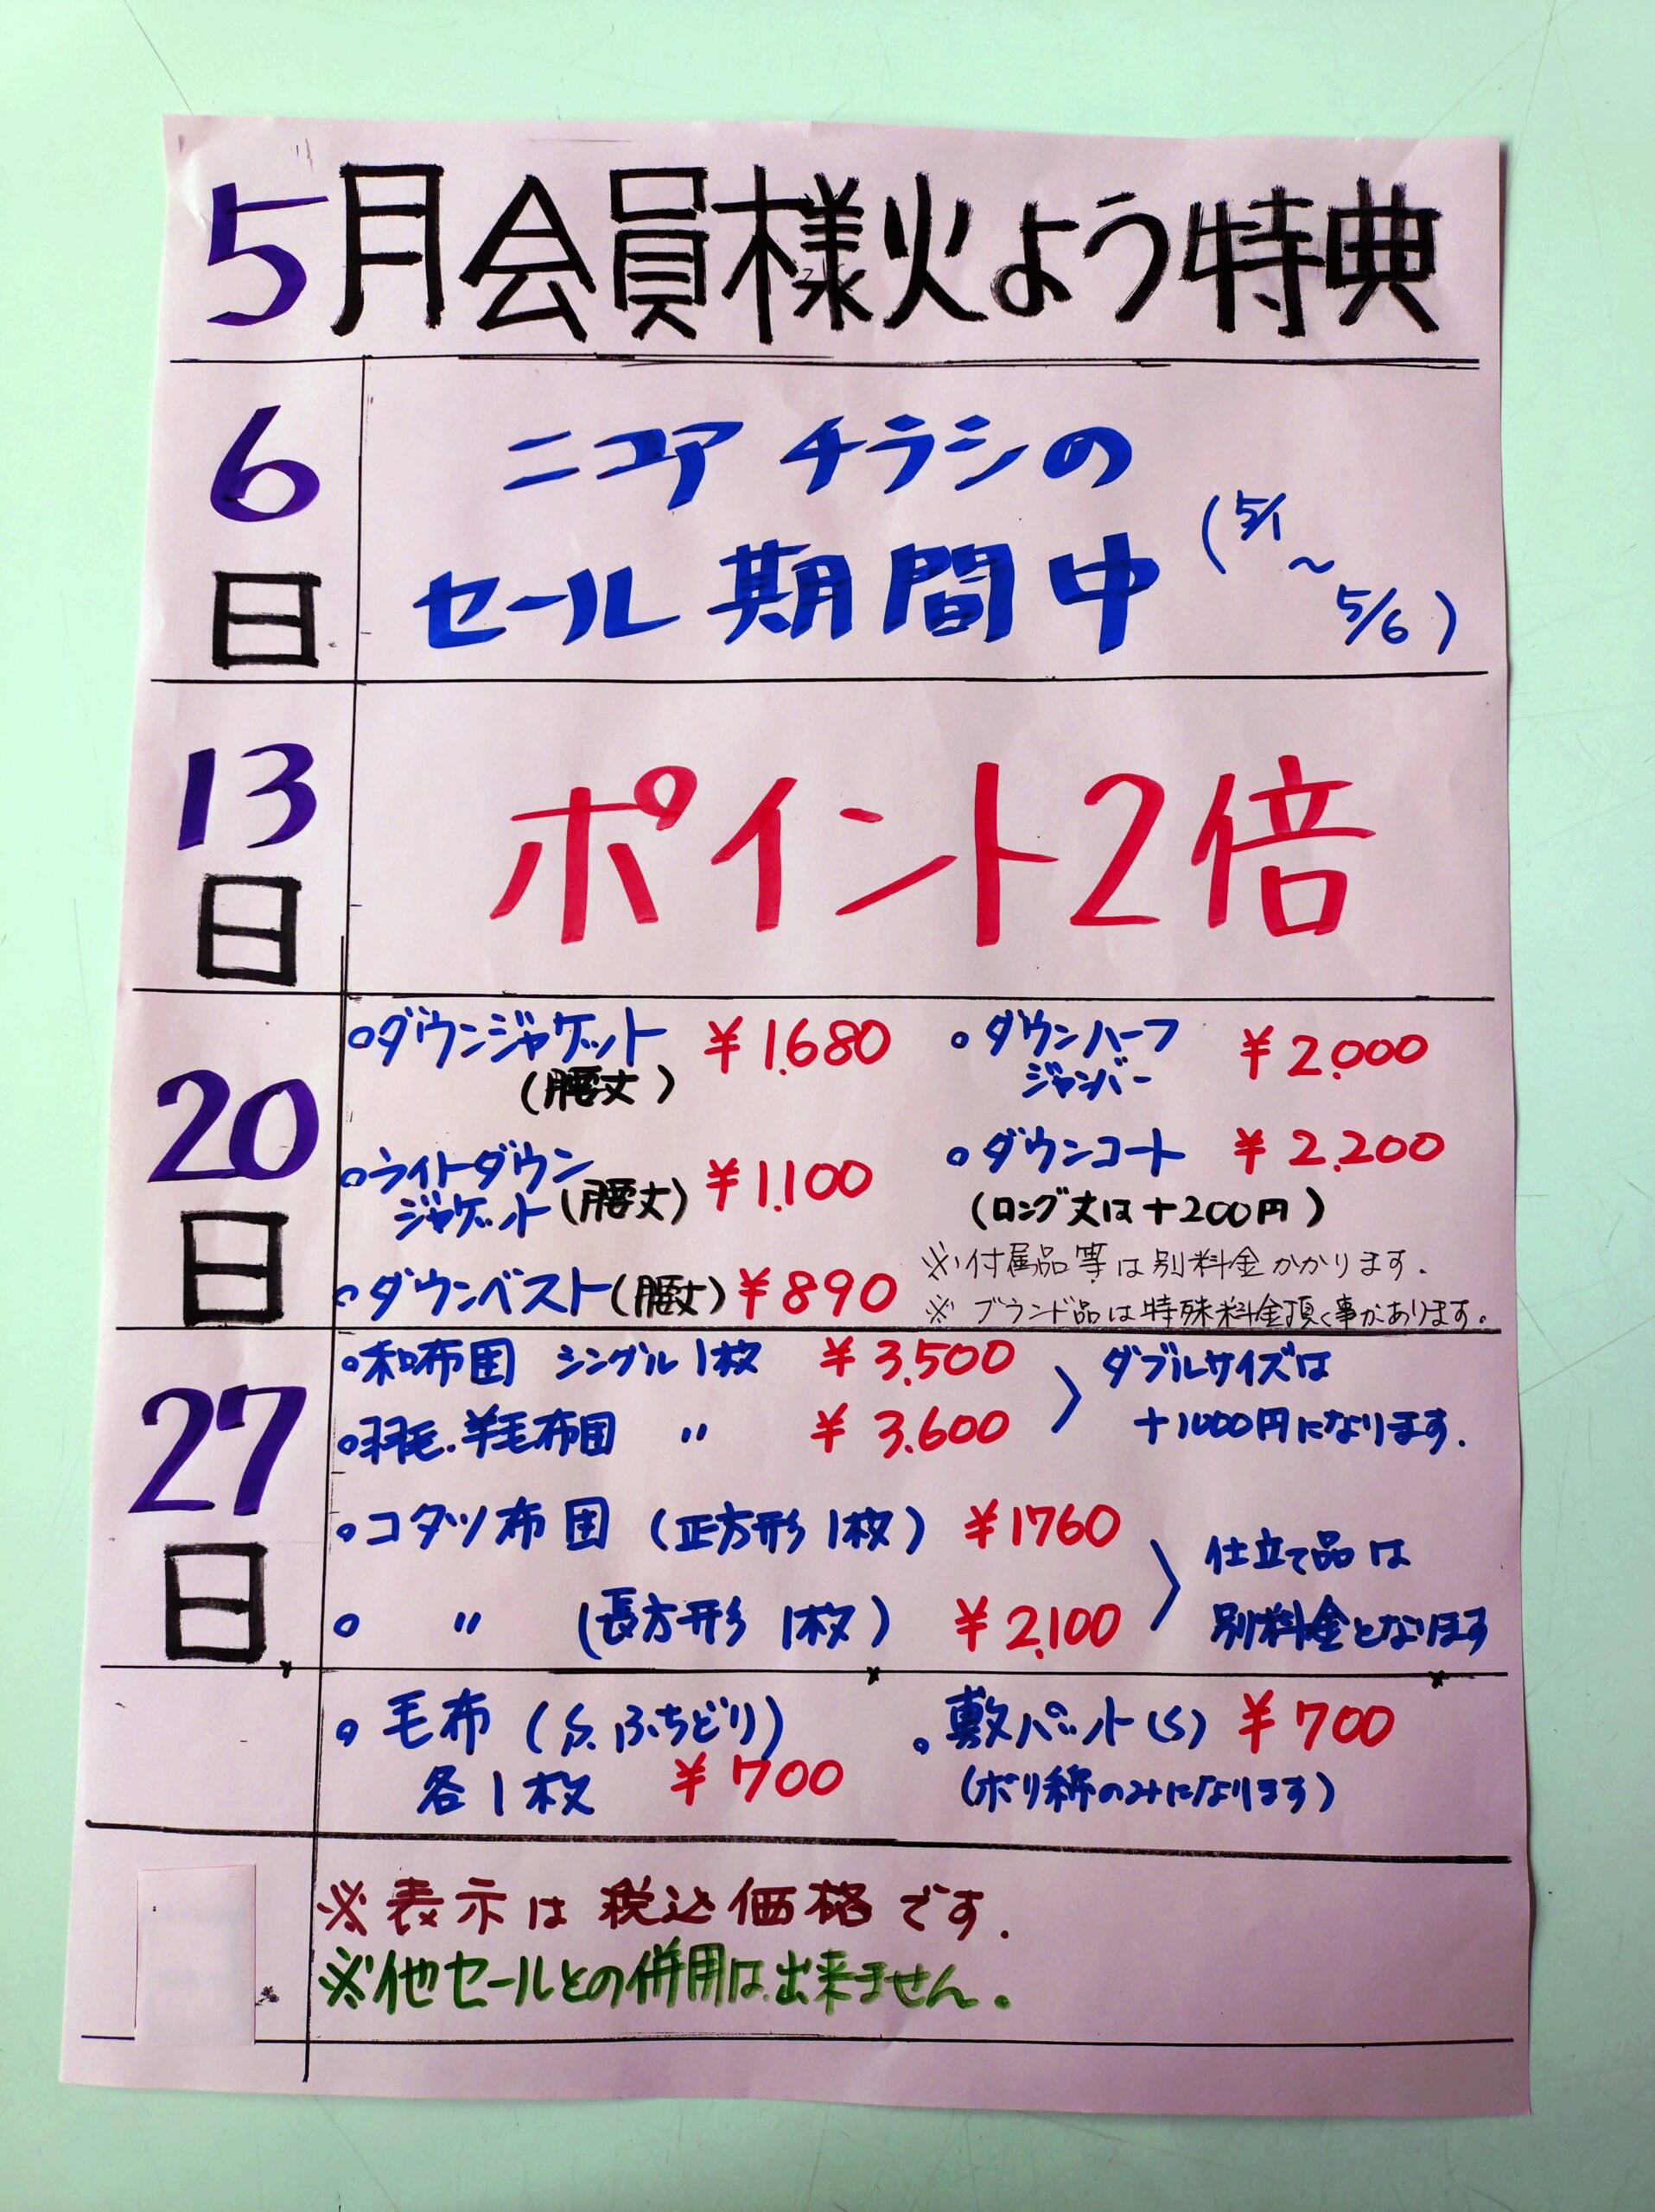 5月会員様火よう特典
6日
ニコア チラシの
セール期間中 (5/1～5/6)
13日
ポイント2倍
20日
○ダウンジャケット ¥1,680
(腰丈)
○ダウンハーフ ¥2,000
ジャンパー
○ライトダウン ¥1,100
ジャケット(腰丈)
○ダウンコート ¥2,200
(ロング丈は+200円)
○ダウンベスト(腰丈) ¥890
※付属品等は別料金かかります.
※ブランド品は特殊料金頂く事があります。
27日
○和布団 シングル1枚 ¥3,500
○羽毛.羊毛布団 〃 ¥3,600
ダブルサイズは
+1000円になります.
○コタツ布団 (正方形1枚) ¥1760
○ 〃 (長方形1枚) ¥2,100
仕立て品は
別料金となります
○毛布 (S.ふちどり)
各1枚 ¥700
○敷パット(S) ¥700
(ポリ綿のみになります)
※表示は税込価格です.
※他セールとの併用は出来ません。